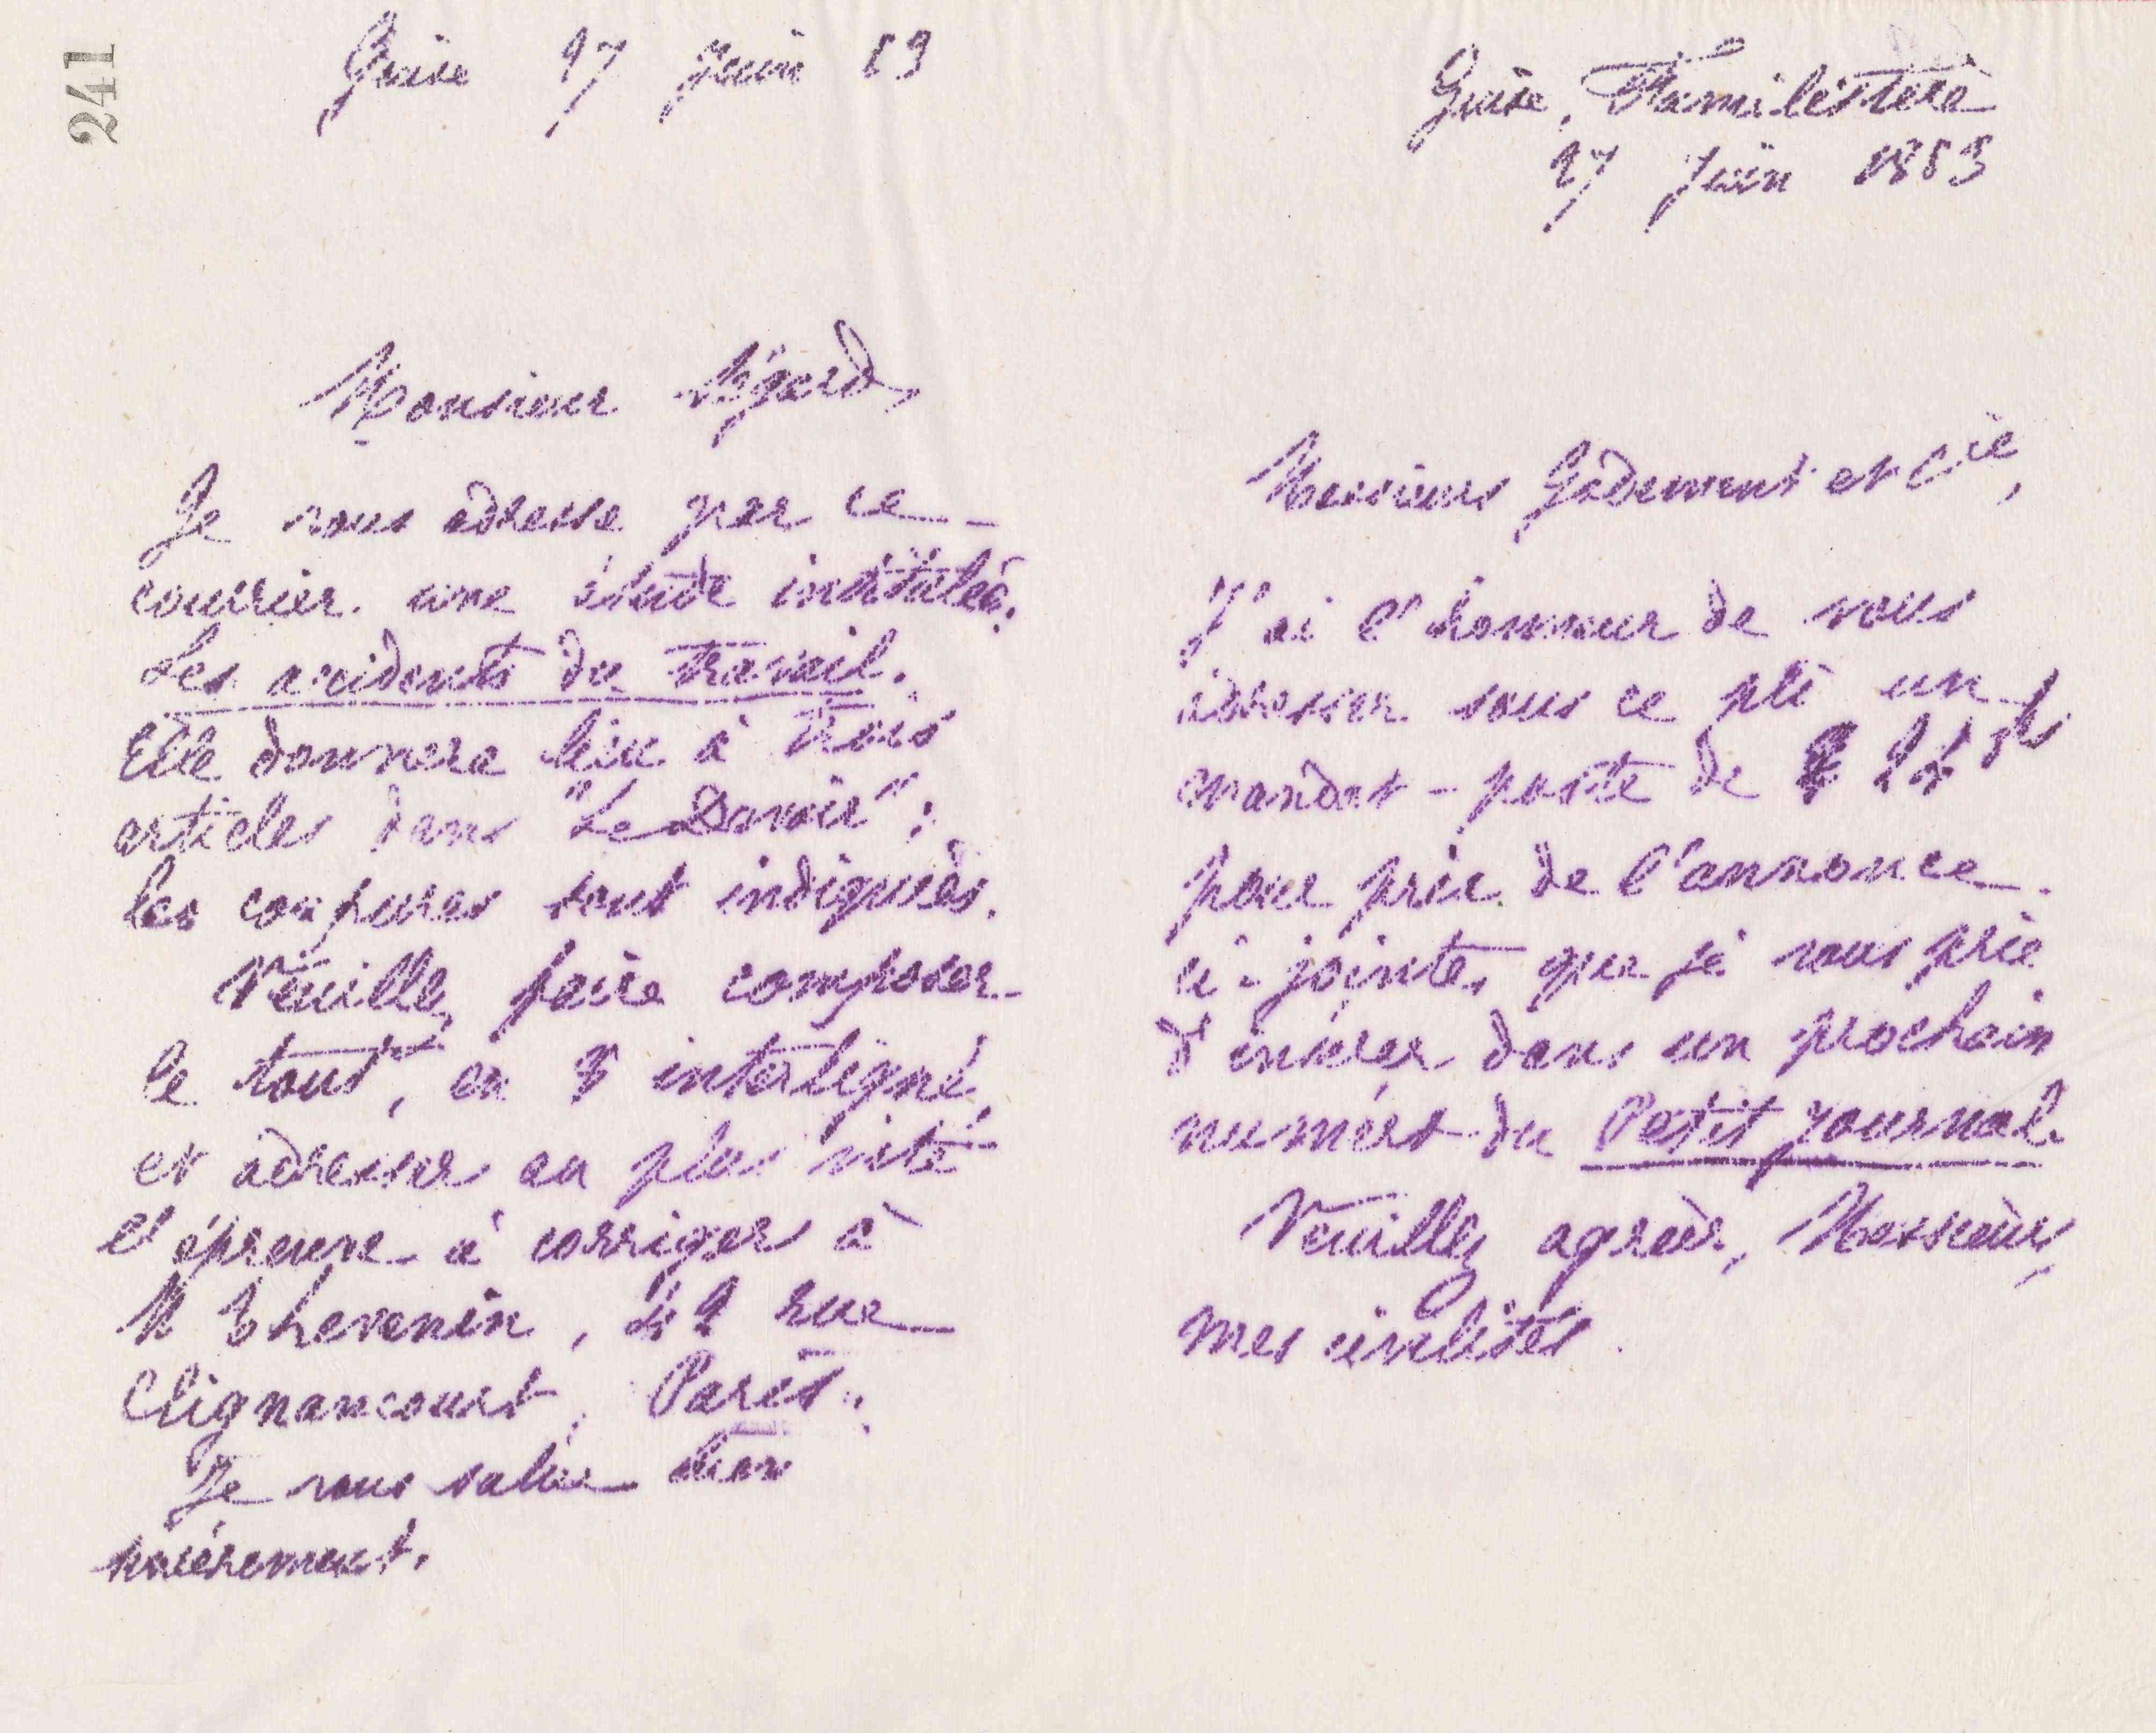 241
Guise 17 Juin 89
Monsieur Bégard,
Je vous adresse par ce
courrier une étude intitulée:
Les accidents du travail.
Elle donnera lieu à trois
articles dans "Le Devoir";
les coupures sont indiquées.
Veuillez faire composer
le tout, en 8 interligné,
et adresser au plus vite
l'épreuve à corriger à
M Thevenin, 42 rue
Clignancourt, Paris.
Je vous salue bien
sincèrement.
Guise, Familistère
17 Juin 1889
Messieurs Godement et Cie,
J'ai l'honneur de vous
adresser sous ce pli un
mandat-poste de
pour prix de l'annonce
ci-jointe, que je vous prie
d'insérer dans un prochain
numéro du Petit Journal
Veuillez agréer, Messieurs,
mes civilités.